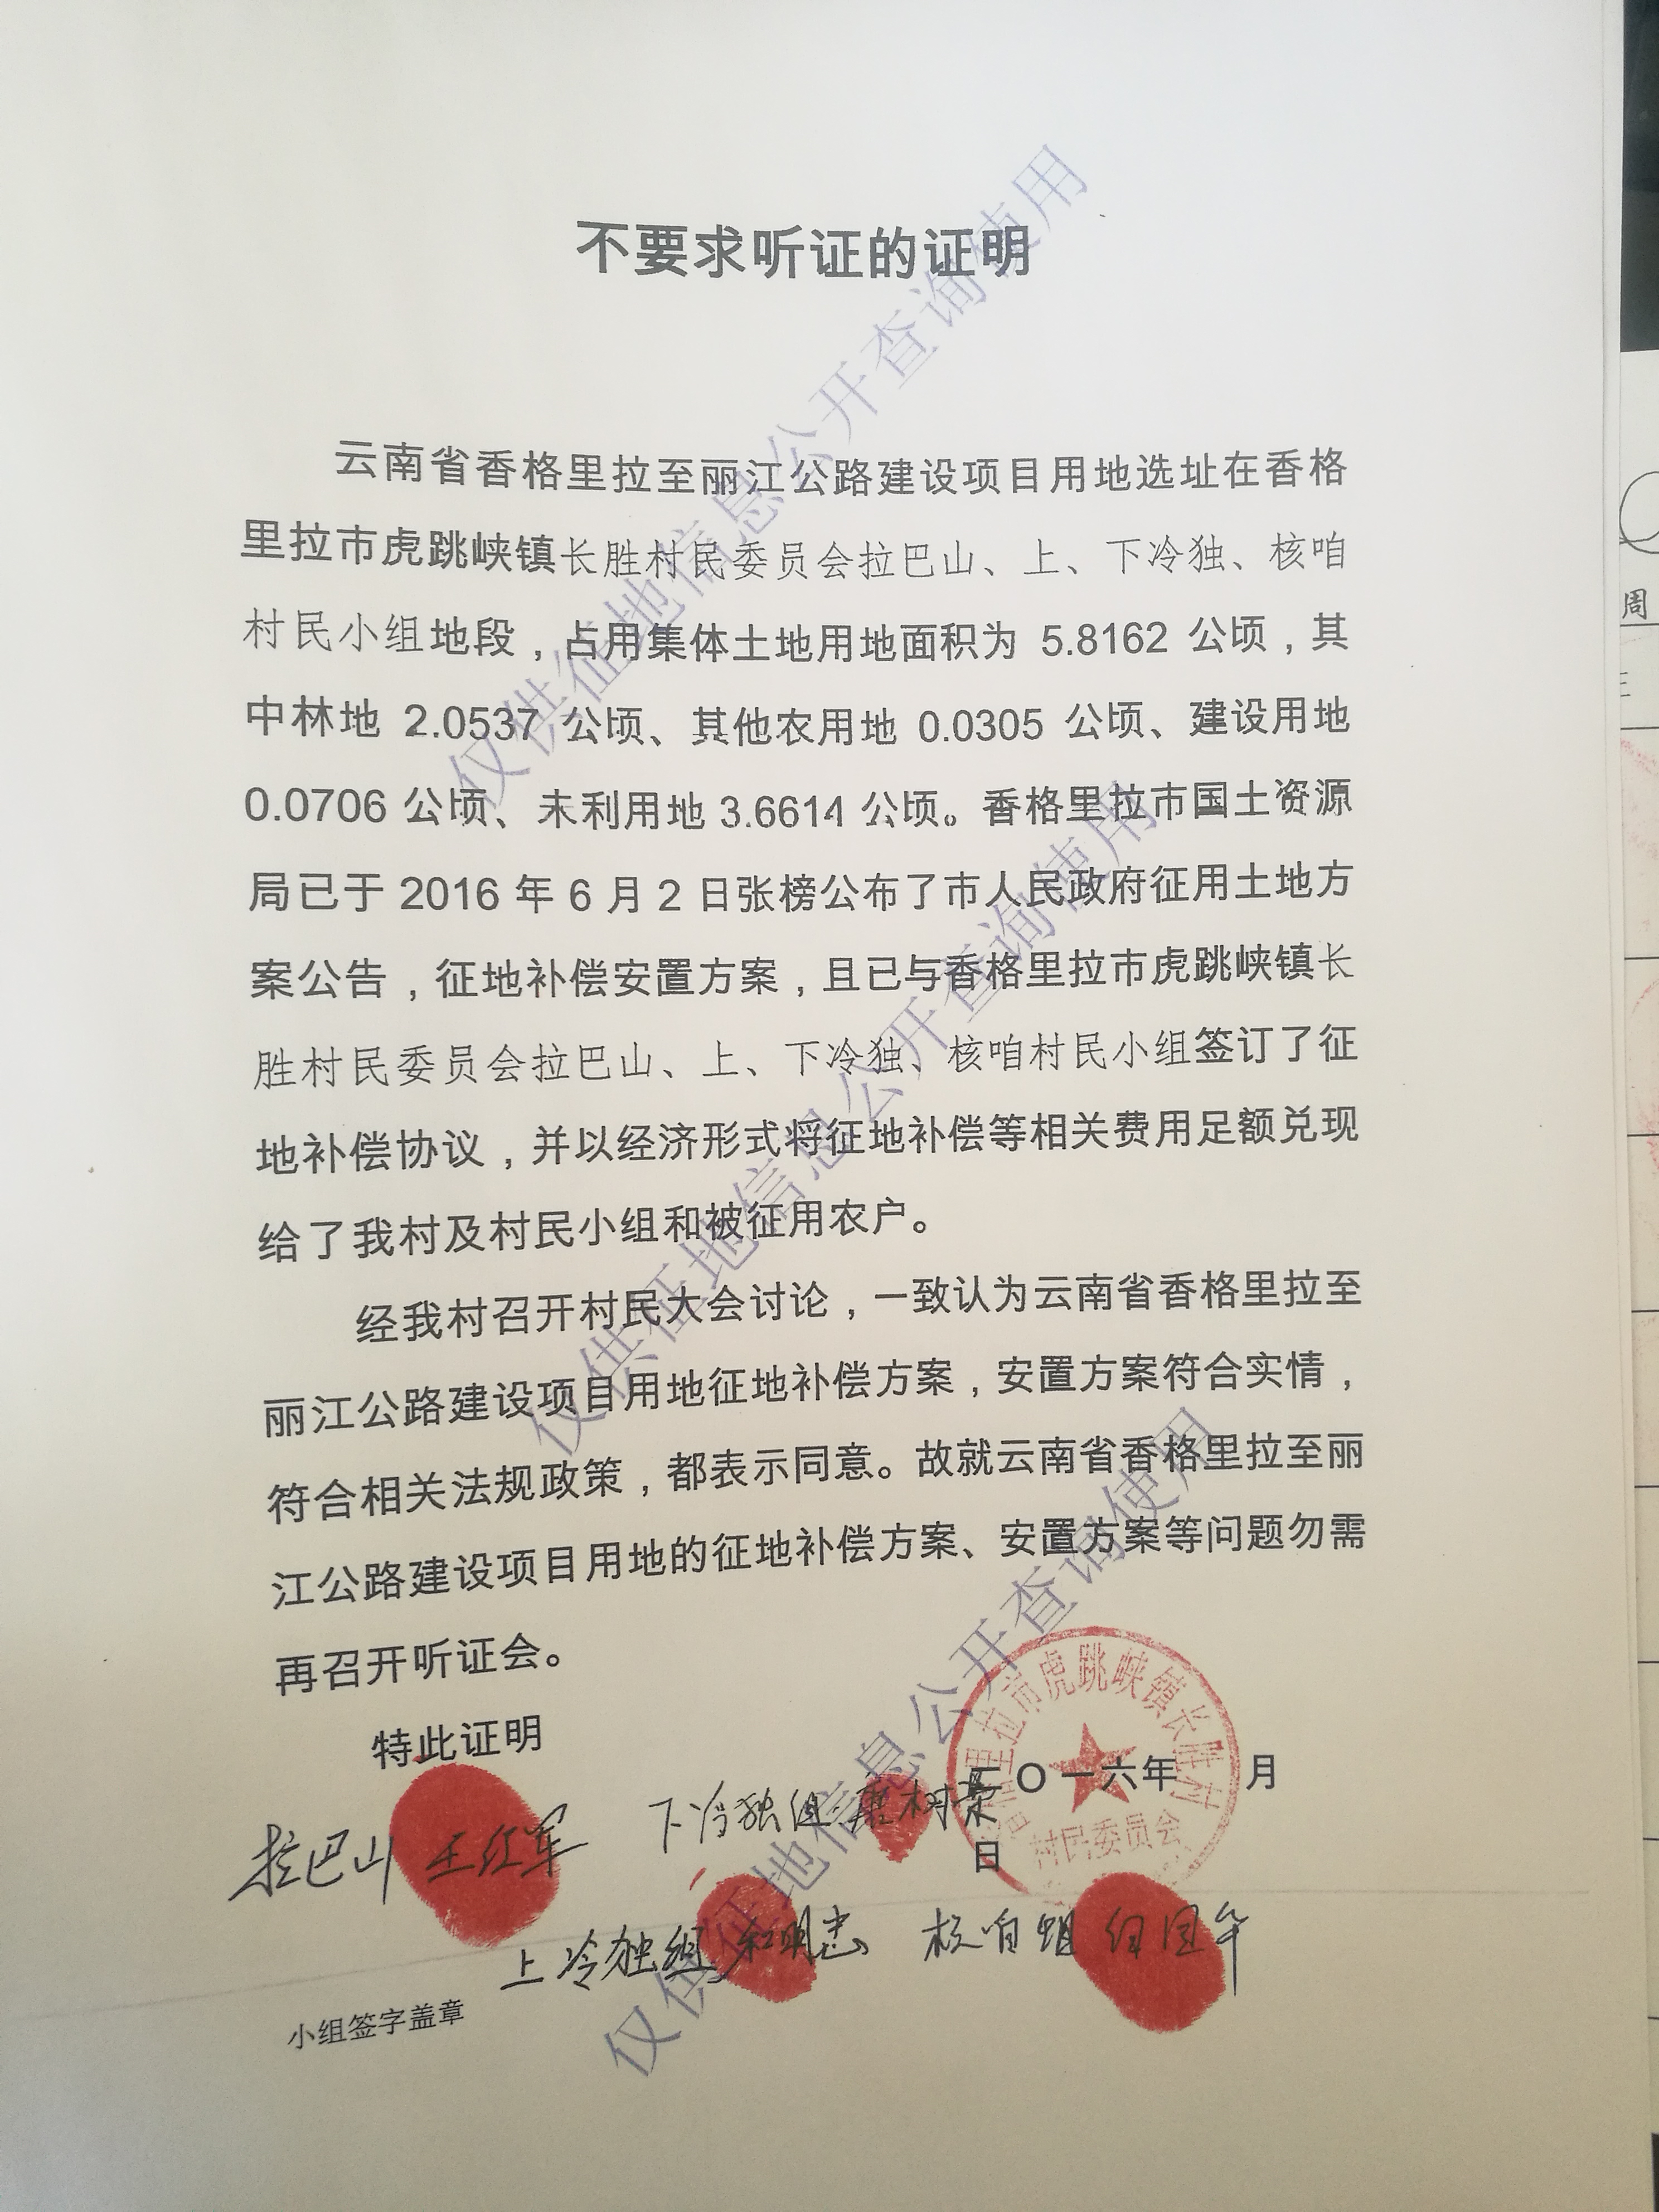 不要求听证的证明
云南省香格里拉至丽江公路建设项目用地选址在香格
里拉市虎跳峡镇长胜村民委员会拉巴山、上、下冷独、核咱
村民小组地段，占用集体土地用地面积为 5.8162 公顷，其
中林地 2.0537 公顷、其他农用地 0.0305 公顷、建设用地
0.0706 公顷、未利用地 3.6614 公顷。香格里拉市国土资源
局已于 2016 年 6 月 2 日张榜公布了市人民政府征用土地方
案公告，征地补偿安置方案，且已与香格里拉市虎跳峡镇长
胜村民委员会拉巴山、上、下冷独、核咱村民小组签订了征
地补偿协议，并以经济形式将征地补偿等相关费用足额兑现
给了我村及村民小组和被征用农户。
经我村召开村民大会讨论，一致认为云南省香格里拉至
丽江公路建设项目用地征地补偿方案，安置方案符合实情，
符合相关法规政策，都表示同意。故就云南省香格里拉至丽
江公路建设项目用地的征地补偿方案、安置方案等问题勿需
再召开听证会。
特此证明
二〇一六年 月
日
香格里拉市虎跳峡镇长胜村
村民委员会
拉巴山 王红军
下冷独组:唐树荣
上冷独组 和明忠
核咱组
小组签字盖章
仅供征地信息公开查询使用
仅供征地信息公开查询使用
仅供征地信息公开查询使用
周